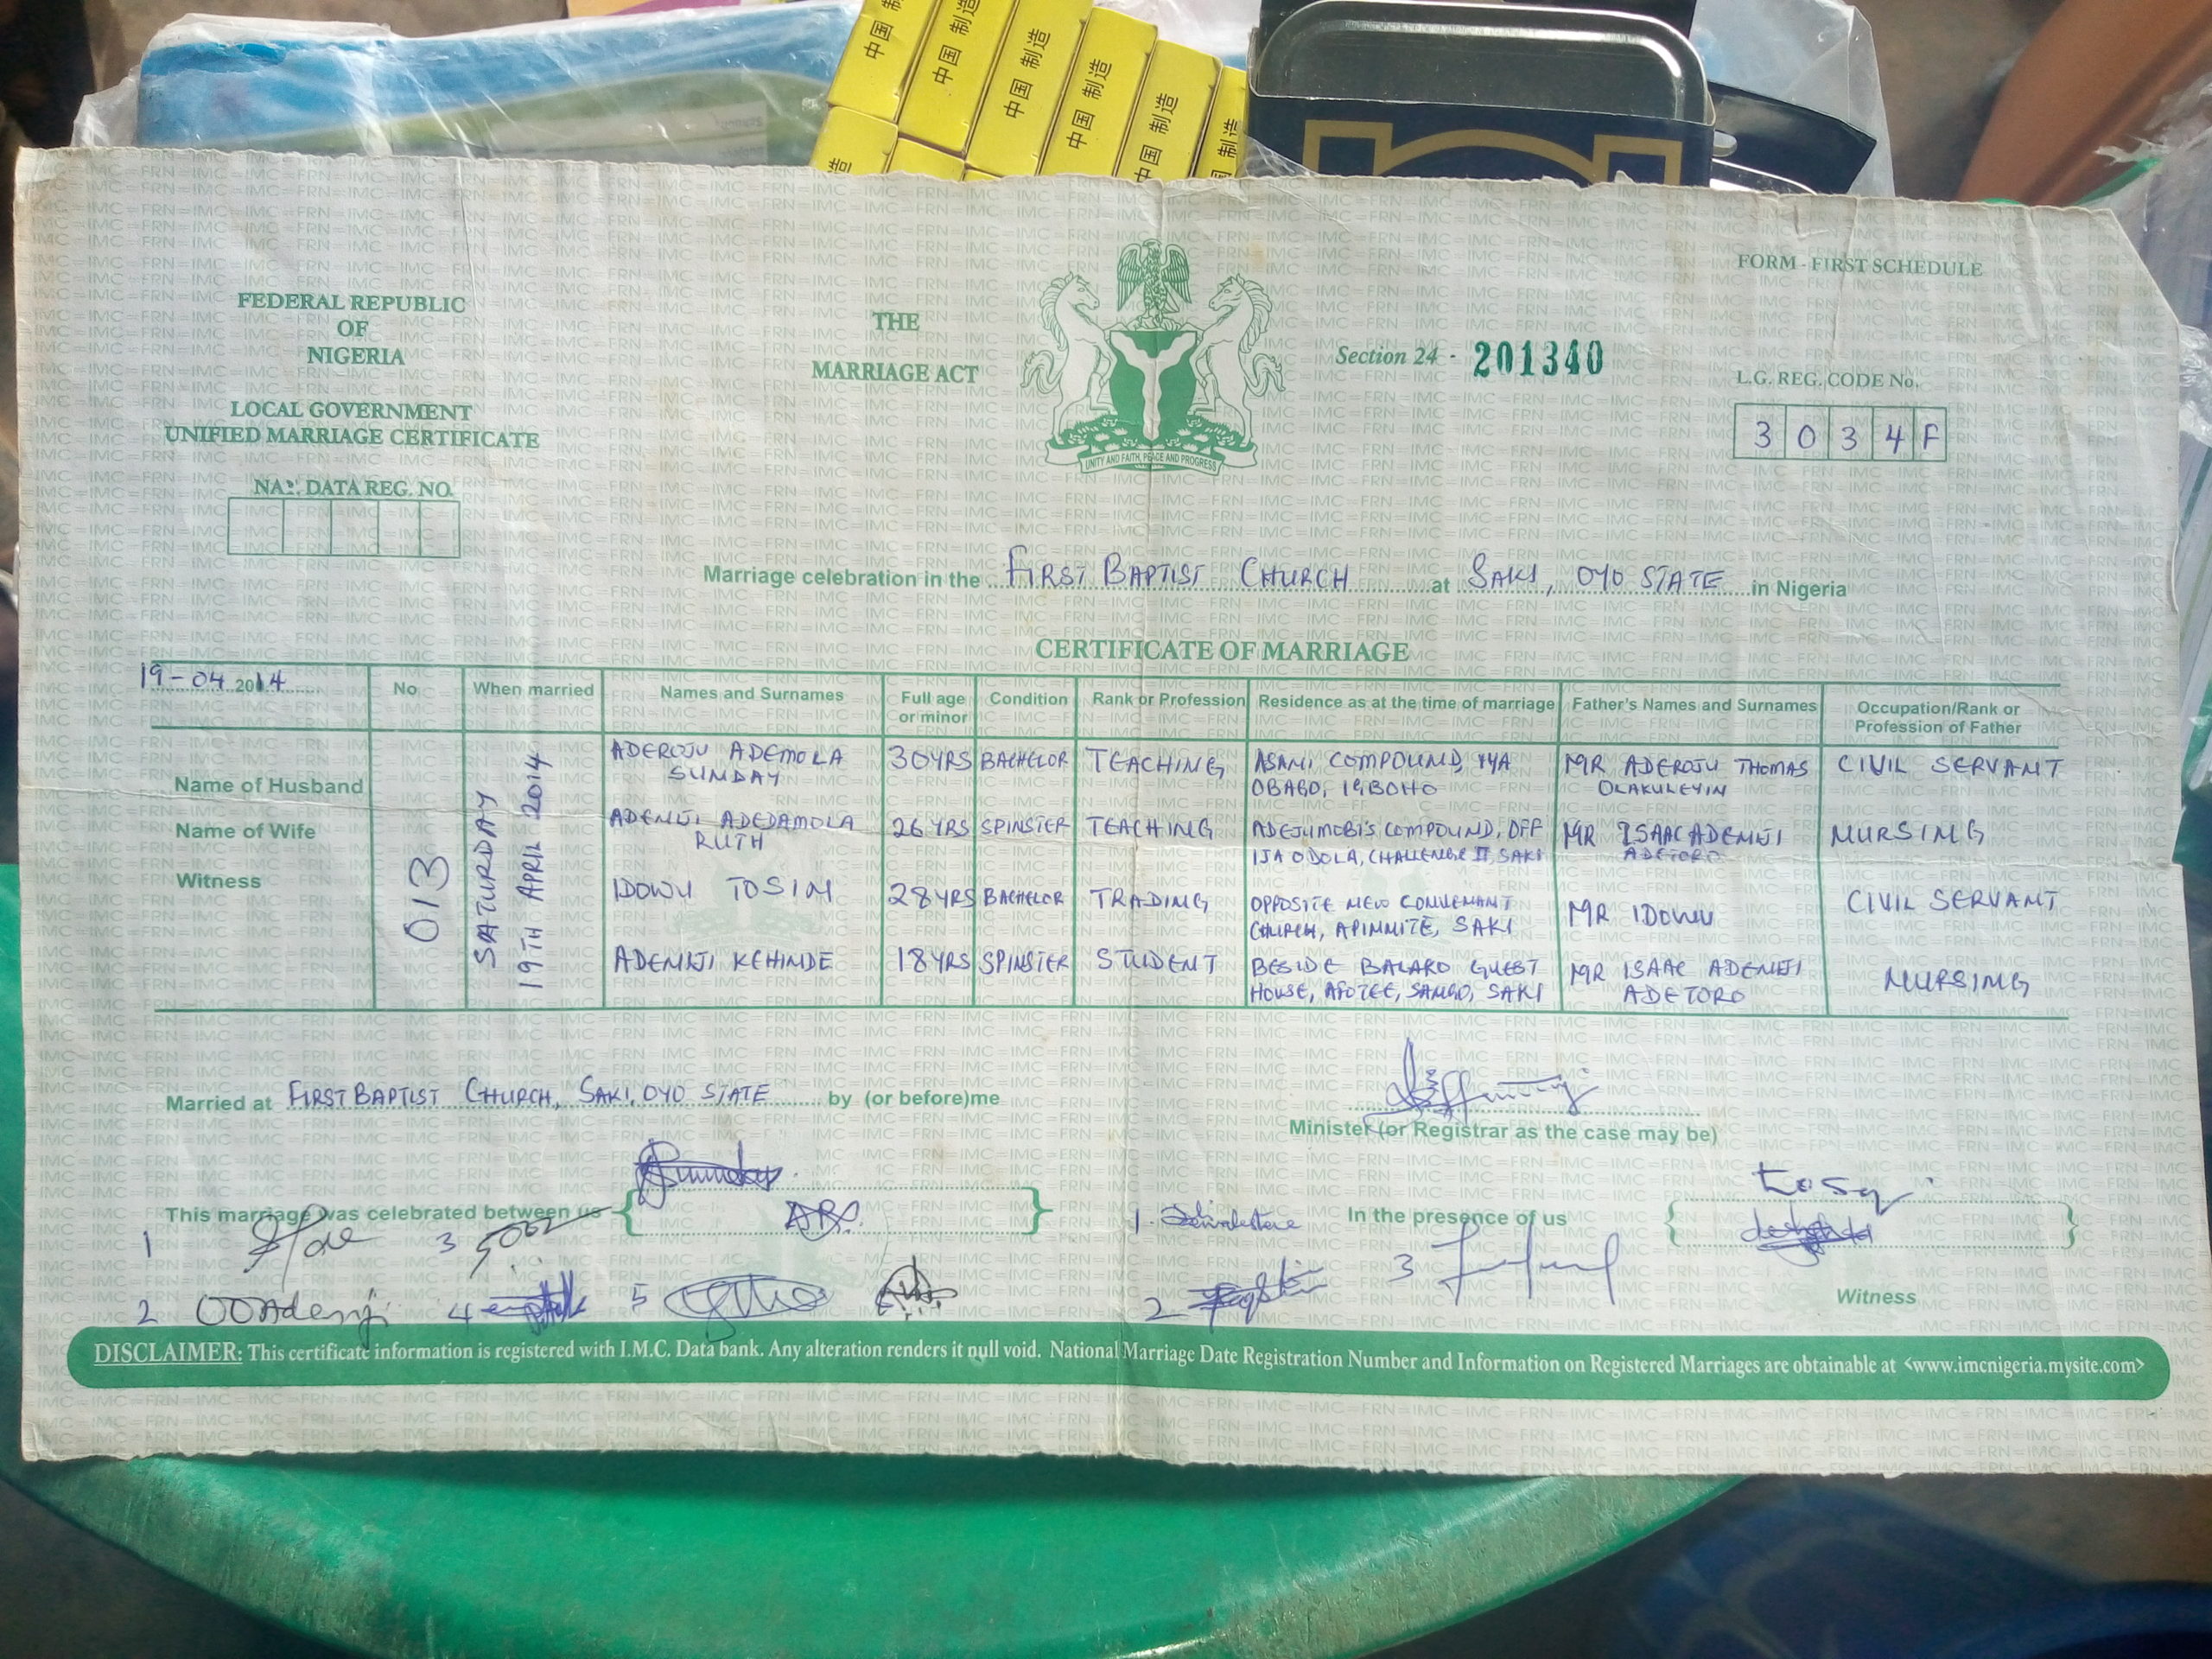 中国 制造
中国 制造
中国 制造
中国 制造
中国 制造
FORM - FIRST SCHEDULE
FEDERAL REPUBLIC
OF
NIGERIA
THE
MARRIAGE ACT
Section 24 - 201340
L.G. REG. CODE No.
3 0 3 4 F
LOCAL GOVERNMENT
UNIFIED MARRIAGE CERTIFICATE
UNITY AND FAITH, PEACE AND PROGRESS
NAT. DATA REG. NO.
Marriage celebration in the FIRST BAPTIST CHURCH at SAKI, OYO STATE in Nigeria
CERTIFICATE OF MARRIAGE
19-04 2014 No When married Names and Surnames Full age or minor Condition Rank or Profession Residence as at the time of marriage Father's Names and Surnames Occupation/Rank or Profession of Father
013
SATURDAY
19TH APRIL 2014
Name of Husband ADEROJU ADEMOLA SUNDAY 30YRS BACHELOR TEACHING ASANI COMPOUND, IYA OBABO, IGBOHO MR ADEROJU THOMAS OLAKULEYIN CIVIL SERVANT
Name of Wife ADENIJI ADEDAMOLA RUTH 26YRS SPINSTER TEACHING ADEJUMOBI'S COMPOUND, OFF ISA ODOLA, CHALLENGE II, SAKI MR ISAAC ADENIJI ADETORO NURSING
Witness IDOWU TOSIN 28YRS BACHELOR TRADING OPPOSITE NEW CONVENANT CHURCH, APINNITE, SAKI MR IDOWU CIVIL SERVANT
ADENIJI KEHINDE 18YRS SPINSTER STUDENT BESIDE BALAKO GUEST HOUSE, SANGO, SAKI MR ISAAC ADENIJI ADETORO NURSING
Married at FIRST BAPTIST CHURCH, SAKI, OYO STATE by (or before)me
Minister (or Registrar as the case may be)
This marriage was celebrated between us
In the presence of us
1 3 1.
2 OOAdeniji 4 5 2 3
Witness
DISCLAIMER: This certificate information is registered with I.M.C. Data bank. Any alteration renders it null void. National Marriage Date Registration Number and Information on Registered Marriages are obtainable at <www.imcnigeria.mysite.com>